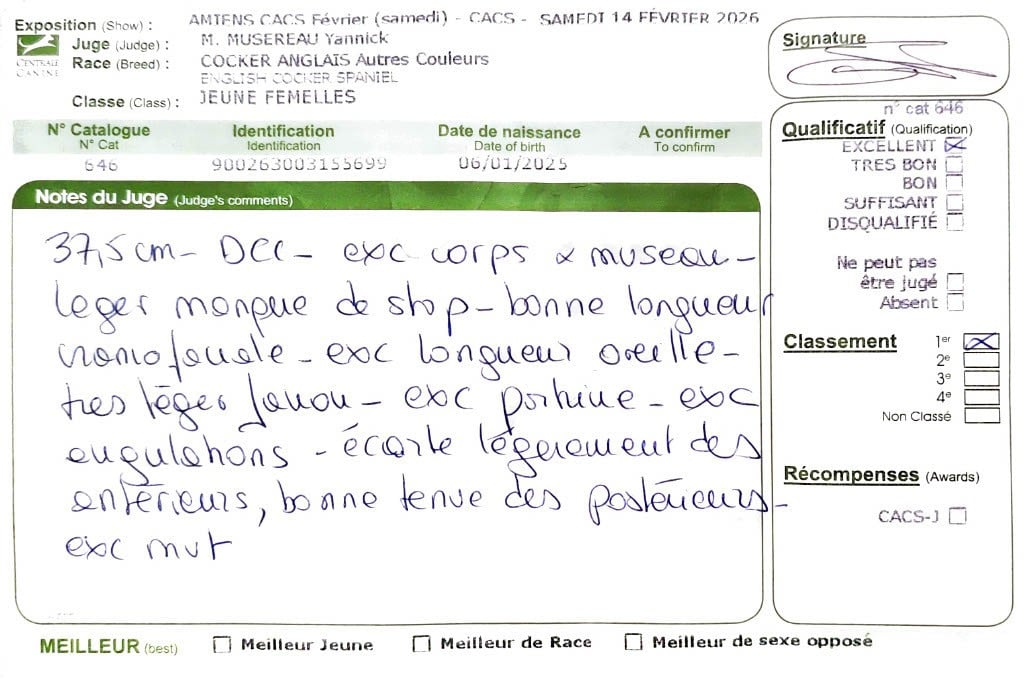 Exposition (Show) : AMIENS CACS Février (samedi) - CACS - SAMEDI 14 FÉVRIER 2026
Juge (Judge) : M. MUSEREAU Yannick
Race (Breed) : COCKER ANGLAIS Autres Couleurs
ENGLISH COCKER SPANIEL
CENTRALE CANINE
Classe (Class) : JEUNE FEMELLES
N° Catalogue Identification Date de naissance A confirmer
N° Cat Identification Date of birth To confirm
646 900263003155699 06/01/2025
Notes du Juge (Judge's comments)
37,5 cm - DCC - exc corps & museau -
leger manque de stop - bonne longueur
cranio faciale - exc longueur oreille -
tres léger fanon - exc poitrine - exc
angulations - écarte légèrement des
antérieurs, bonne tenue des postérieurs -
exc mvt
MEILLEUR (best) Meilleur Jeune Meilleur de Race Meilleur de sexe opposé
Signature
n° cat 646
Qualificatif (Qualification)
EXCELLENT
TRES BON
BON
SUFFISANT
DISQUALIFIÉ
Ne peut pas
être jugé
Absent
Classement 1er
2e
3e
4e
Non Classé
Récompenses (Awards)
CACS-J